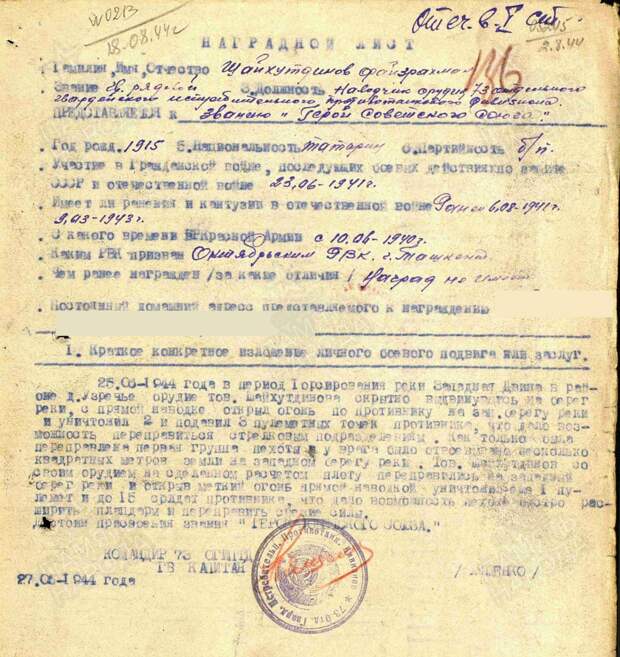 № 0213
18.08.44г
Отеч. в. I ст
2.8.44
НАГРАДНОЙ ЛИСТ
. Фамилия, Имя, Отчество Шайхутдинов Файзрахман
Звание Гв. рядовой 3. Должность Наводчик орудия 73 отдельного
гвардейского истребительного противотанкового дивизиона.
ПРЕДСТАВЛЯЕТСЯ к "Званию "Герой Советского Союза."
. Год рожд. 1915 5. Национальность татарин 6. Партийность б/п.
. Участие в Гражданской войне, последующих боевых действиях по защите
СССР и отечественной войне 23.06-1941г.
. Имеет ли ранения и контузии в отечественной войне Ранен 6.08-1941г.
9.03-1943г.
. С какого времени в Красной Армии с 10.06-1940г.
. Каким РВК призван Октябрьским РВК. г. Ташкент
. Чем ранее награжден /за какие отличия/ Наград не имеет
. Постоянный домашний адрес представляемого к награждению
I. Краткое конкретное изложение личного боевого подвига или заслуг.
25.06-1944 года в период форсирования реки Западная Двина в рай-
оне д. Узречье орудие тов. Шайхутдинова скрытно выдвинулась на берег
реки, с прямой наводке открыл огонь по противнику на зап. берегу реки
и уничтожил 2 и подавил 3 пулеметных точек противника, что дало воз-
можность переправиться стрелковым подразделениям. Как только была
переправлена первая группа пехоты и у врага было отвоевано несколько
квадратных метров земли на западном берегу реки. Тов. Шайхутдинов со
своим орудием на сделанном расчетом плоту переправились на западный
берег реки и открыв меткий огонь прямой наводкой уничтожив еще I пу-
лемет и до 15 солдат противника, что дало возможность пехоте быстро рас-
ширить плацдарм и переправить свои силы.
Достоин присвоения звания "ГЕРОЙ СОВЕТСКОГО СОЮЗА."
КОМАНДИР 73 ОГИПТД
ГВ КАПИТАН
27.06-1944 года